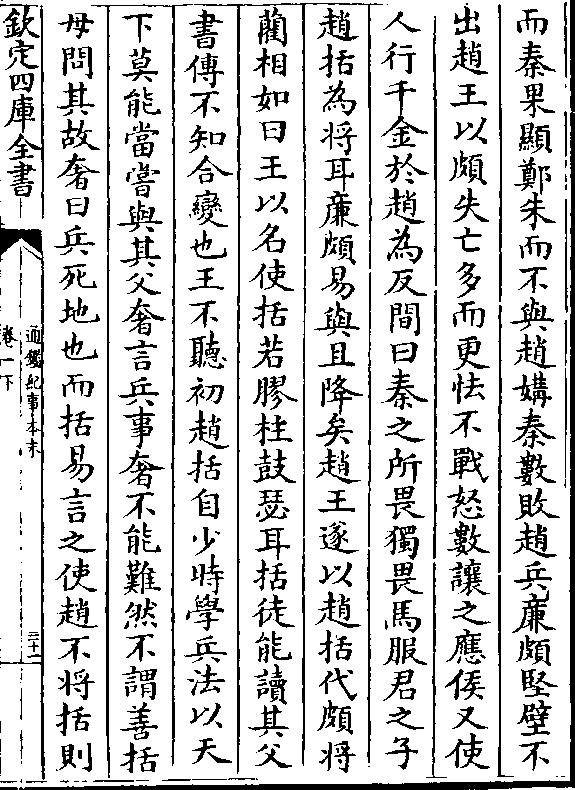 而秦果顯鄭朱而不與趙媾秦數敗趙兵廉頗堅壁不
出趙王以頗失亡多而更怯不戰怒數讓之應侯又使
人行千金於趙為反間曰秦之所畏獨畏馬服君之子
趙括為將耳廉頗易與且降矣趙王遂以趙括代頗將
藺相如曰王以名使括若膠柱鼓瑟耳括徒能讀其父
書傳不知合變也王不聽初趙括自少時學兵法以天
下莫能當嘗與其父奢言兵事奢不能難然不謂善括
母問其故奢曰兵死地也而括易言之使趙不將括則
欽定四庫全書
通鑑紀事本末
卷一下
三十一